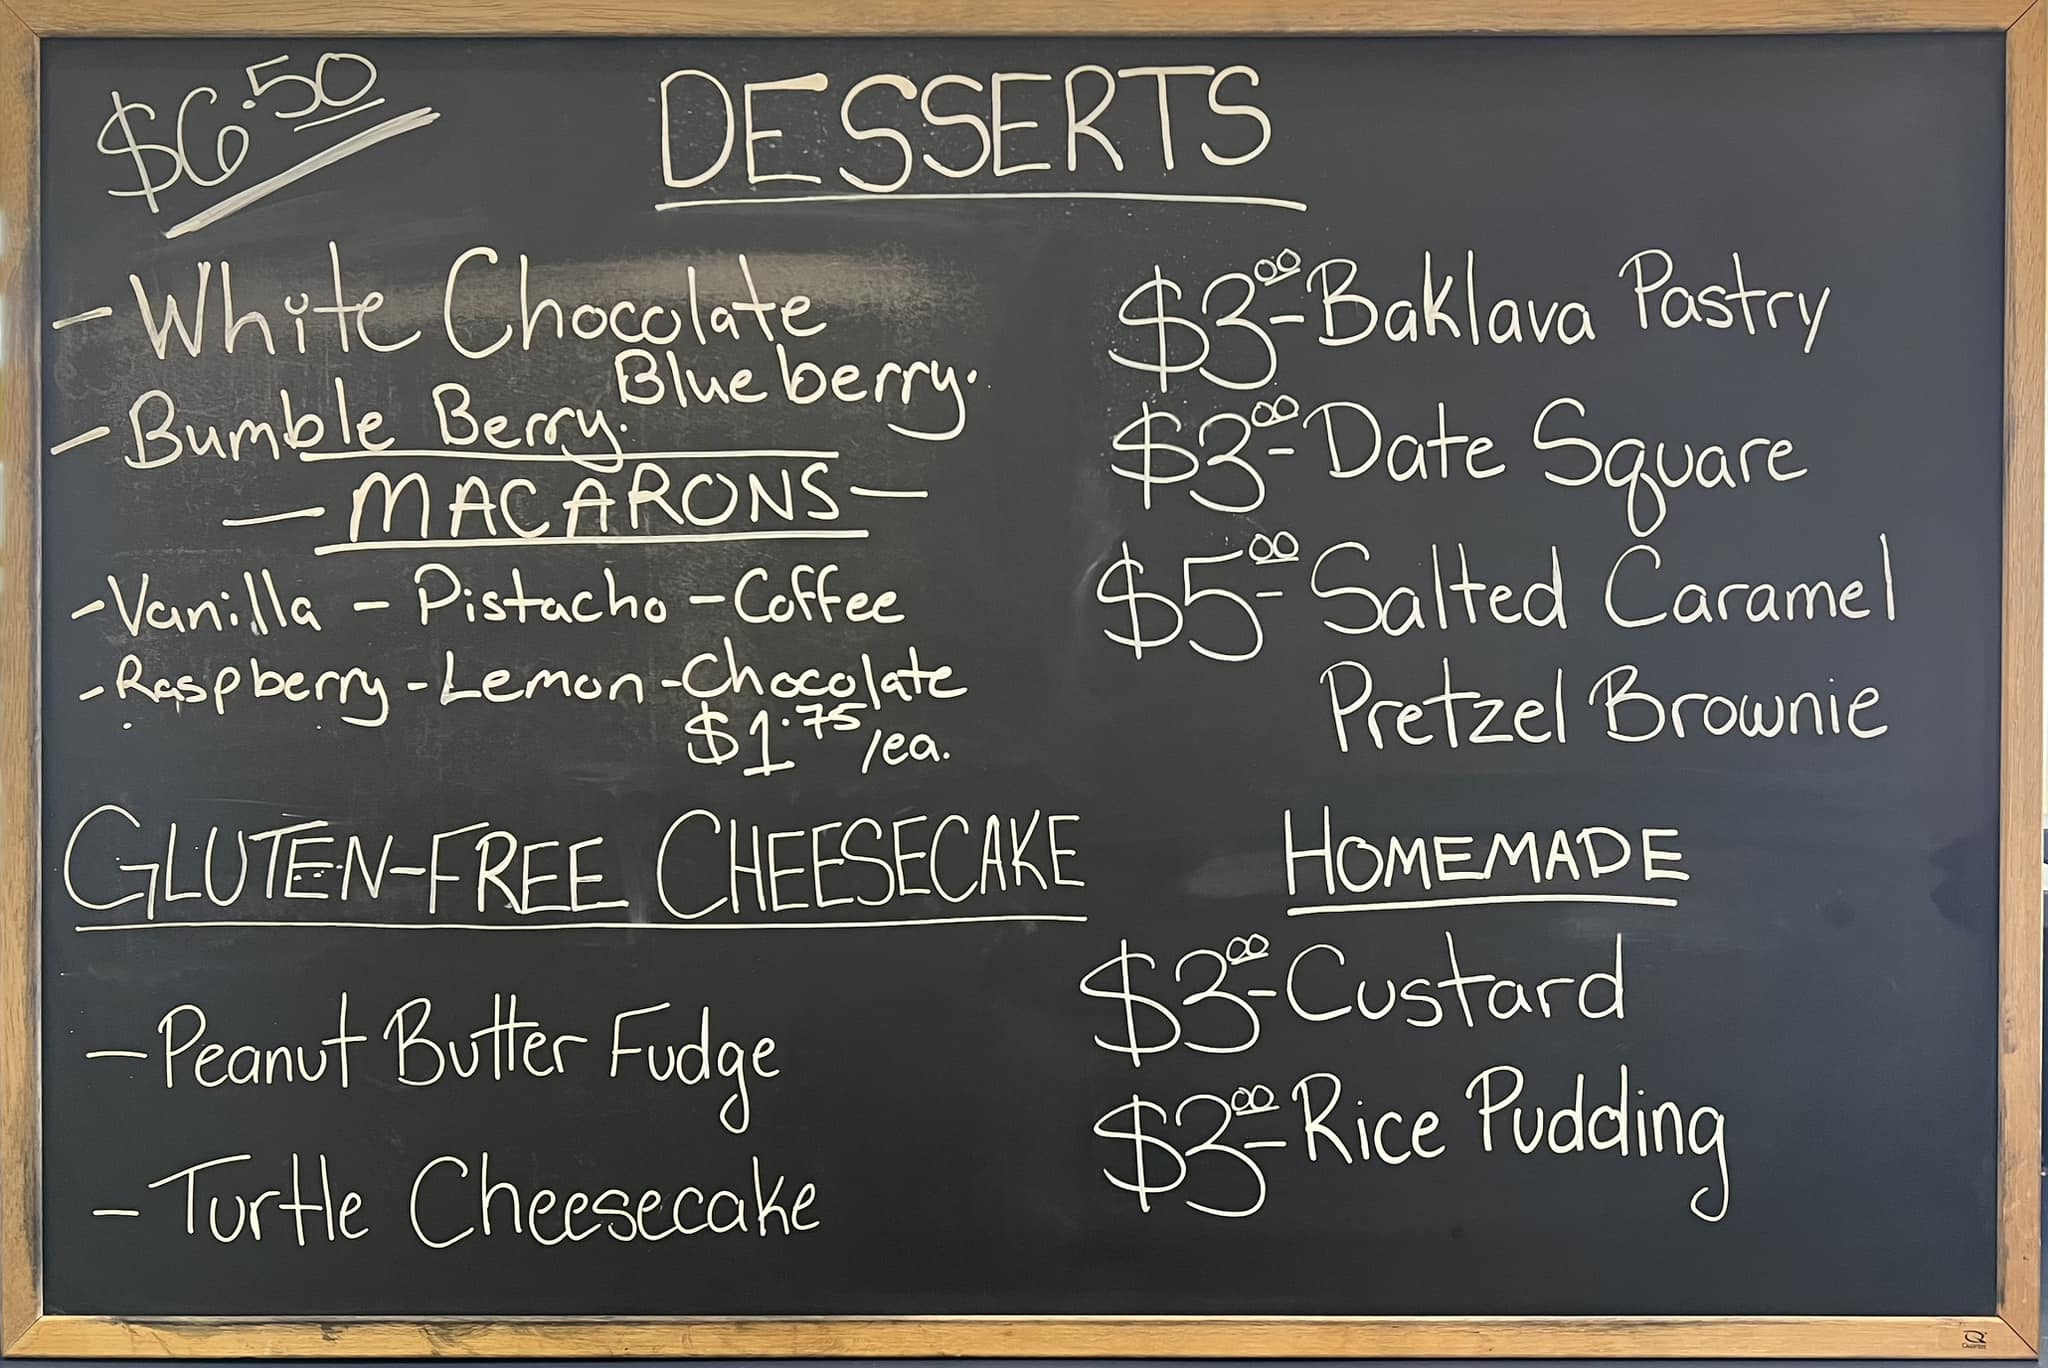 $6.50
DESSERTS
- White Chocolate
Blueberry.
- Bumble Berry.
- MACARONS -
- Vanilla - Pistacho - Coffee
- Raspberry - Lemon - Chocolate
$1.75/ea.
GLUTEN-FREE CHEESECAKE
- Peanut Butter Fudge
- Turtle Cheesecake
$3.00 - Baklava Pastry
$3.00 - Date Square
$5.00 - Salted Caramel
Pretzel Brownie
HOMEMADE
$3.00 - Custard
$3.00 - Rice Pudding